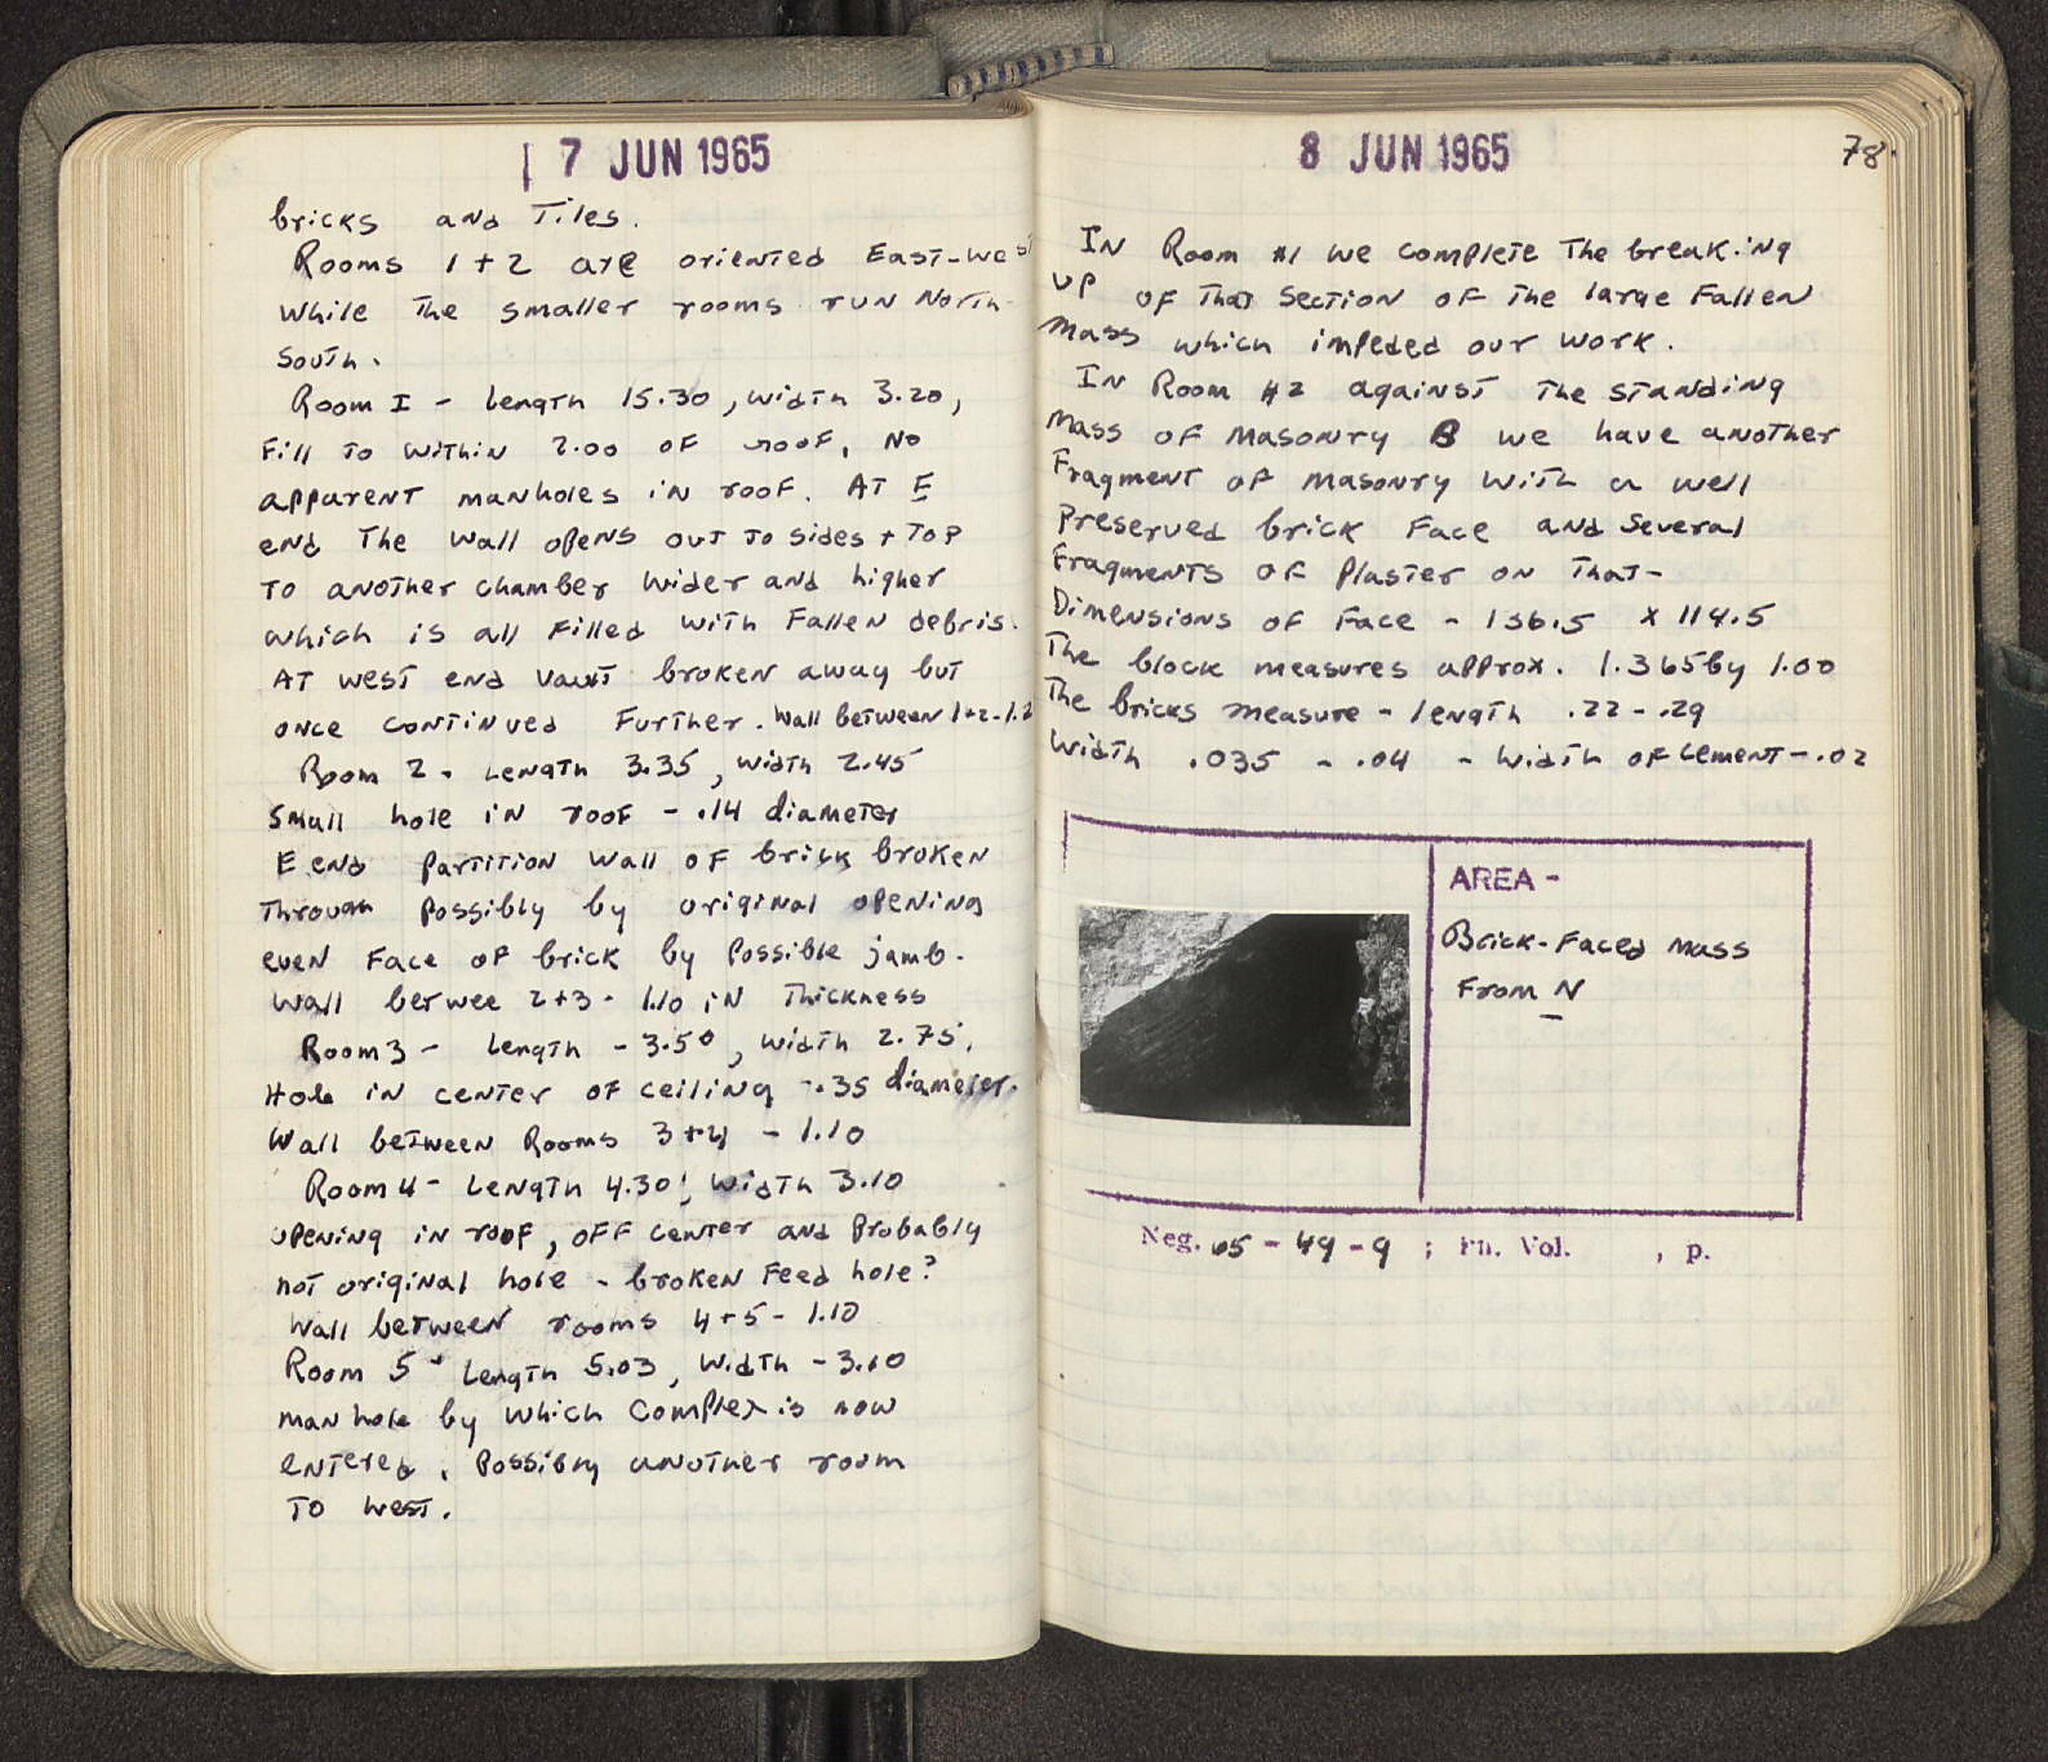 17 JUN 1965
bricks and Tiles.
Rooms 1+2 are oriented East-West
while The smaller rooms run North
South.
Room I - Length 15.30, width 3.20,
Fill to within 2.00 of roof, No
apparent manholes in roof. At E
end The wall opens out to sides + Top
to another chamber wider and higher
which is all filled with Fallen debris.
At west end vault broken away but
once continued Further. Wall between 1+2-
Room 2. Length 3.35, width 2.45
Small hole in roof - .14 diameter
E end Partition wall of brick broken
Through Possibly by original opening
even Face of brick by Possible jamb.
Wall betwee 2+3 - 1.10 in Thickness
Room 3 - Length - 3.50, width 2.75,
Hole in center of ceiling -.35 diameter.
Wall between Rooms 3+4 - 1.10
Room 4 - Length 4.30, width 3.10
opening in roof, off center and Probably
not original hole - broken Feed hole?
Wall between rooms 4+5 - 1.10
Room 5 - Length 5.03, width - 3.10
manhole by which Complex is now
entered. Possibly another room
To west.
8 JUN 1965
78
In Room #1 we complete The breaking
up of That Section of The large Fallen
mass which impeded our work.
In Room #2 against The standing
Mass of Masonry B we have another
Fragment of masonry with a well
Preserved brick Face and Several
Fragments of Plaster on That-
Dimensions of Face - 136.5 x 114.5
The block measures approx. 1.365 by 1.00
The bricks measure - length .22 - .29
Width .035 - .04 - Width of cement - .02
AREA -
Brick-Faced mass
From N
Neg. 65 - 49 - 9 ; Ph. Vol. , p.